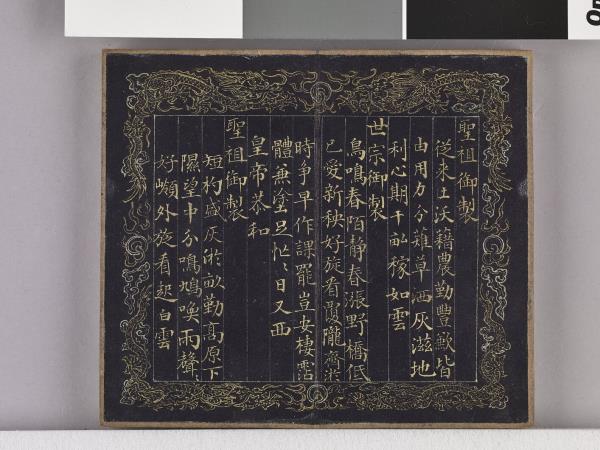 聖祖御製
從來土沃藉農勤豐歉皆
由用力分薙草洒灰滋地
利心期千畝稼如雲
世宗御製
鳥鳴春陌静春漲野橋低
已愛新秧好旋看覆隴齊淤
時爭早作課罷豈安棲霑
體兼塗足忙〻日又西
皇帝恭和
聖祖御製
短杓盛灰淤畝勤高原下
隰望中分鳴鳩喚雨聲〻
好外旋看起白雲